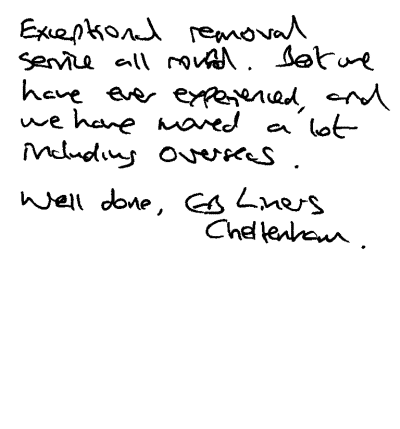 Exceptional removal
service all round. Best we
have ever experienced, and
we have moved a lot
including overseas.
Well done, GB Liners
Cheltenham.